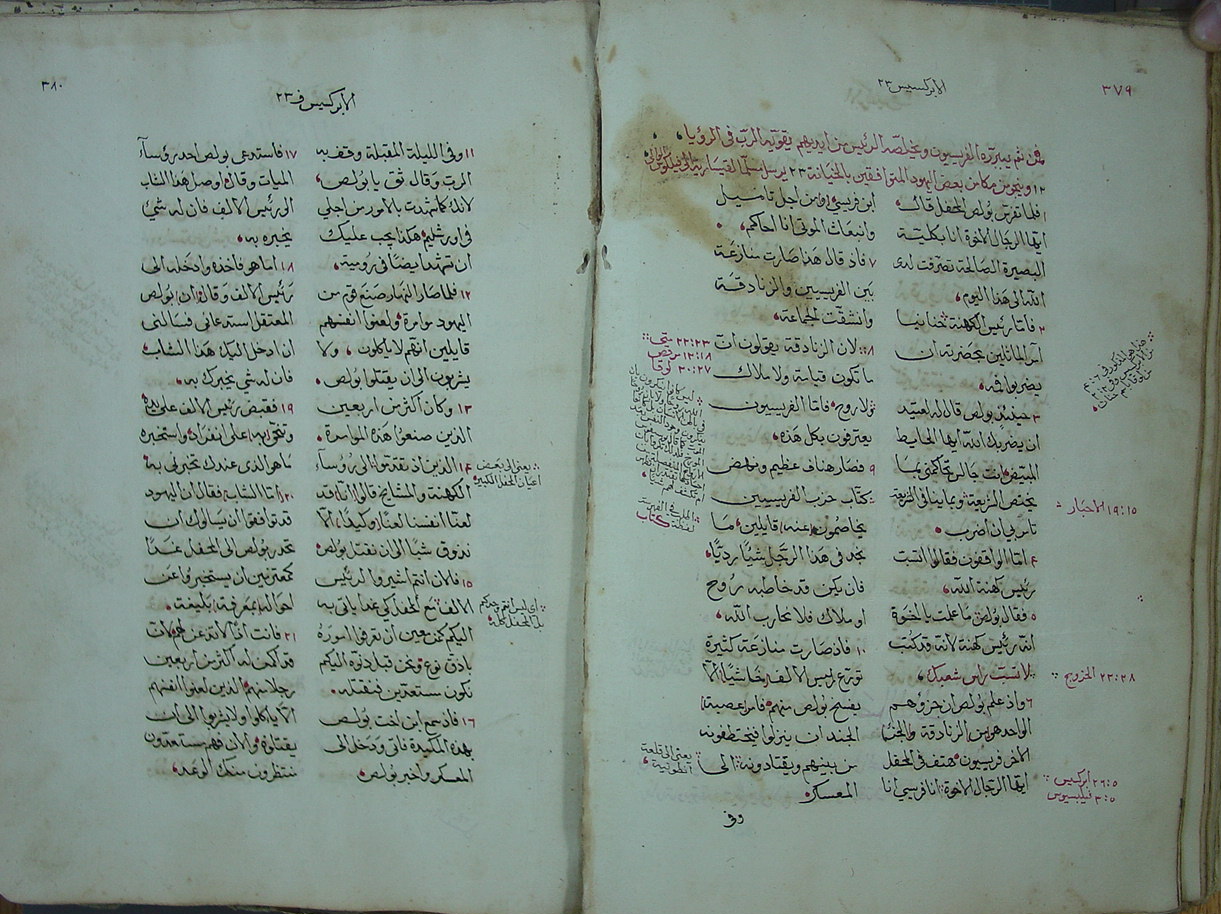 ٣٧٩
الابركسيس ٢٣
ومن ثم يبرره الفريسيون ويخلصه الرئيس من ايديهم يقويه الرب في الرؤيا
١٢ ويجوس مكامن بعض اليهود المتوافقين بالخيانة ٢٣ يرسل مسلما القيسارية الى فيلكوس الوالي
١ فلما تفرس بولص المحفل قال
ايها الرجال الاخوة انا بكلية
البصيرة الصالحة تصرفت لدى
الله الى هذا اليوم
٢ فاما رئيس الكهنة حنانيا
امر الماثلين بحضرته ان
يضربوا فمه
٣ حينئذ بولص قال له لعتيد
ان يضربك الله ايها الحايط
المبيض انت جالس تحاكمني بما
يختص الشريعة وبما ينافي الشريعة
تامر بي ان اضرب
٤ اما الواقفون فقالوا اتسب
رئيس كهنة الله
٥ فقال بولص ما علمت يا اخوة
انه رئيس كهنة لانه قد كتب
لا تسب راس شعبك
٦ واذ علم بولص ان جزوهم
الواحد هو من الزنادقة والجزء
الاخر فريسيون هتف في المحفل
ايها الرجال الاخوة انا فريسي انا
ابن فريسي ومن اجل تاميل
وانبعاث الموتى انا احاكم
٧ فاذ قال هذا صارت منازعة
بين الفريسيين والزنادقة
وانشقت الجماعة
٨ لان الزنادقة يقولون ان
ما تكون قيامة ولا ملاك
ولا روح فاما الفريسيون
يعترفون بكل هذه
٩ فصار هتاف عظيم ونهض
كتاب حزب الفريسيين
يخاصمون (عنه) قايلين ما
نجد في هذا الرجل شيئا رديا
فان يكن قد خاطبه روح
او ملاك فلا نحارب الله
١٠ فاذ صارت منازعة كثيرة
توزع رئيس الالف خاشيا الا
يفسخ بولص منهم فامر (عصبة)
الجند ان ينزلوا فيختطفونه
من بينهم ويقتادونه الى
المعسكر
وفي
١٩:١٥ الاحبار
٢٣:٢٨ الخروج
٢٦:٥ ابركسيس
٣:٥ فيلبسيوس
٢٢:٢٣ متى
١٢:١٨ مرقص
٢٠:٢٧ لوقا
يعني الى قلعة
انطونية
٣٨٠
الابركسيس ف ٢٣
١١ وفي الليلة المقبلة وقف به
الرب وقال ثق يا بولص
لانك كما شهدت بالامور من اجلي
في اورشليم هكذا يجب عليك
ان تشهد ايضا في رومية
١٢ فلما صار النهار صنع قوم من
اليهود موامرة ولعنوا انفسهم
قايلين انهم لا ياكلون ولا
يشربون الى ان يقتلوا بولص
١٣ وكان اكثر من اربعين
الذين صنعوا هذه الموامرة
١٤ الذين اذ تقدموا الى روسآء
الكهنة والمشايخ قالوا اننا قد
لعنا انفسنا لعنا (وكيدا) الا
نذوق شيا الى ان نقتل بولص
١٥ فالان انتم اشيروا لرئيس
الالف مع المحفل كي غدا ياتي به
اليكم كمزمعين ان تعرفوا اموره
باذق نوع ونحن قبل دنوه اليكم
نكون مستعدين لنقتله
١٦ فاذ سمع ابن اخت بولص
بهذه المكيدة فاتى ودخل الى
المعسكر واخبر بولص
١٧ فاستدعى بولص احد روسآء
الميات وقال اوصل هذا الشاب
الى رئيس الالف فان له شي
يخبره به
١٨ اما هو فاخذه وادخله الى
رئيس الالف وقال ان بولص
المعتقل استدعاني فسالني
ان ادخل اليك هذا الشاب
فان له شي يخبرك به
١٩ فقبض رئيس الالف على يده
وتنحى (بها) على انفراد واستخبره
ما هو الذي عندك تخبرني به
٢٠ اما الشاب فقال ان اليهود
قد توافقوا ان يسالوك ان
تحدر بولص الى المحفل غدا
كمعتزمين ان يستخبروا عن
احواله (بمعرفة) بليغة
٢١ فانت اما لا تذعن لهم لان
قد كمن له اكثر من اربعين
رجلا منهم الذين لعنوا انفسهم
الا ياكلوا ولا يشربوا الى ان
يقتلوه والان هم مستعدون
ينتظرون منك الوعد
يعني الى بعض
اعيان المحفل الكبير